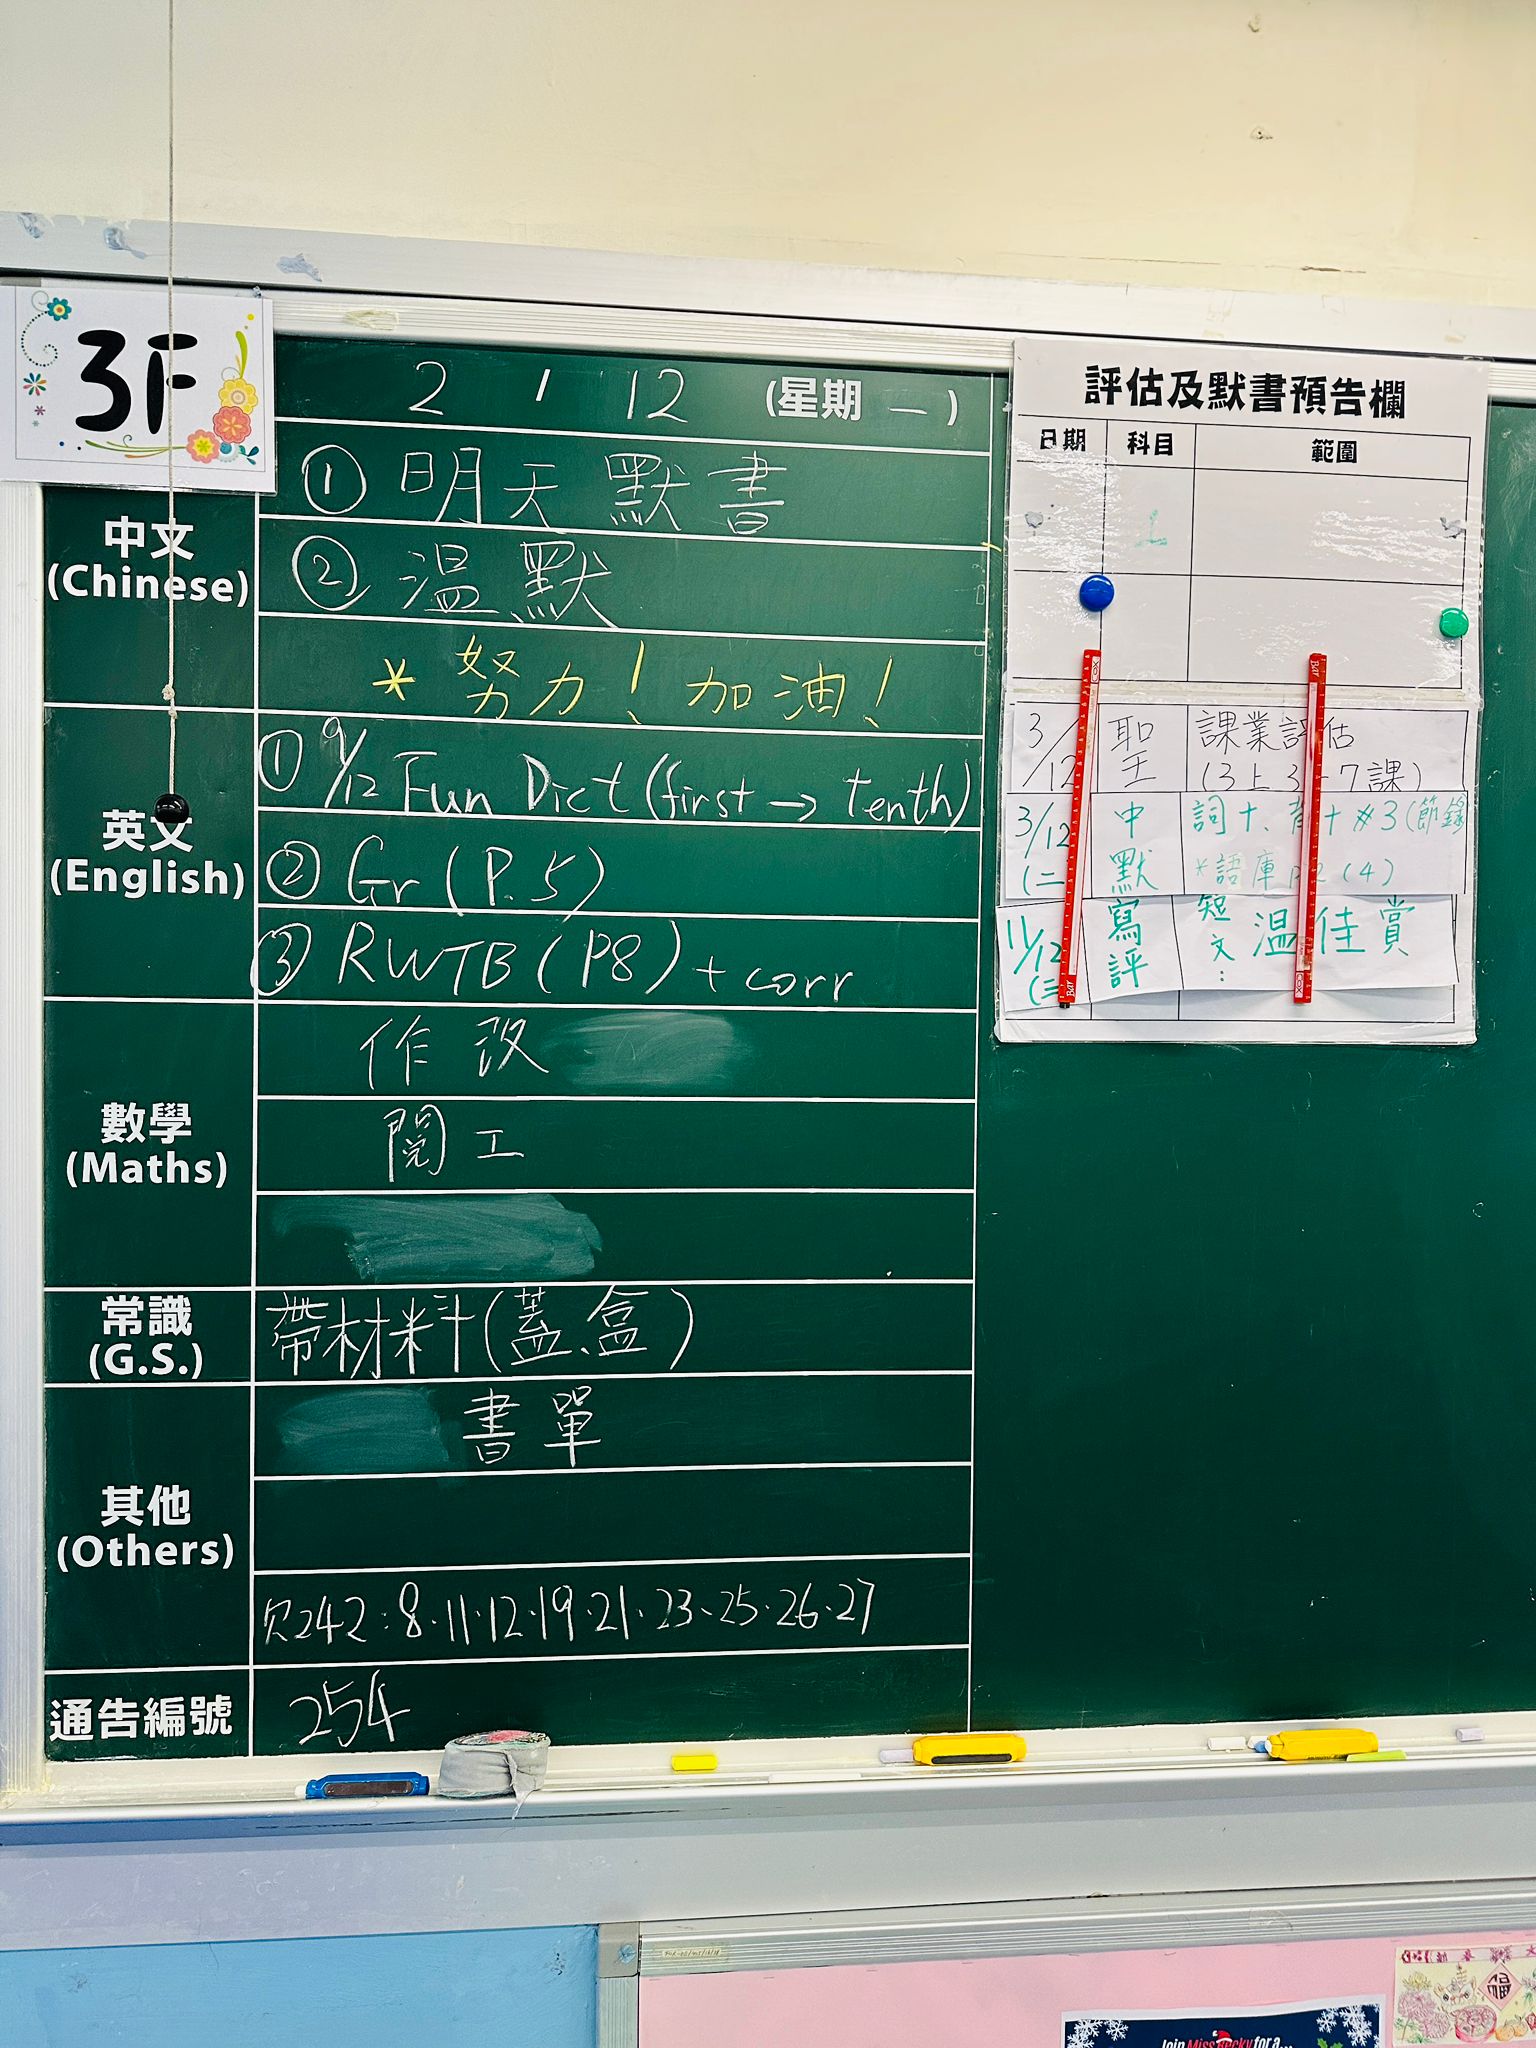 3F
2 / 12 (星期 一 )
中文
(Chinese)
① 明天默書
② 温默
* 努力！加油！
英文
(English)
① 9/12 Fun Dict (first → tenth)
② Gr (P.5)
③ RWTB (P8) + corr
數學
(Maths)
作改
閱工
常識
(G.S.)
帶材料(蓋、盒)
其他
(Others)
書單
欠242:8·11·12·19·21·23·25·26·27
通告編號
254
評估及默書預告欄
日期 科目 範圍
3/12 聖 課業評估
(3上3-7課)
3/12 中 詞十、十 #3(節錄
(二 默 *語庫 (4)
11/12 寫 短文: 温佳賞
(三 評
Join Miss Becky for a...
福